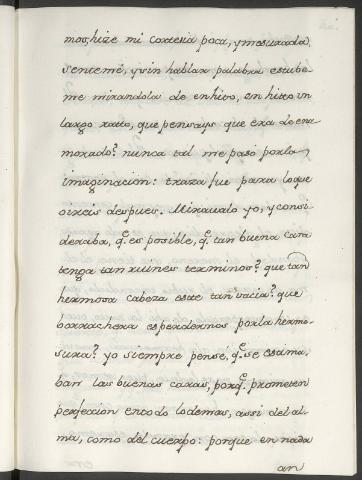 mos, hize mi cortesia poca, y mesurada,
senteme, y sin hablar palabra estube-
me mirandola de enhito, en hito un
largo ratto, que pensays que era de ena
morado? nunca tal me pasó por la
imaginacion: traza fue para lo que
oireis despues. Mirauala yo, y consi
deraba, q.e es posible, q.e tan buena cara
tenga tan ruines terminos? que tan
hermosa cabeza este tan vacia? que
borrachera es perdernos por la hermo-
sura? yo siempre pensé, q.e se estima,
ban las buenas caras, porq.e prometen
perfeccion en todo lo demas, assi del al
ma, como del cuerpo: porque en nada
an